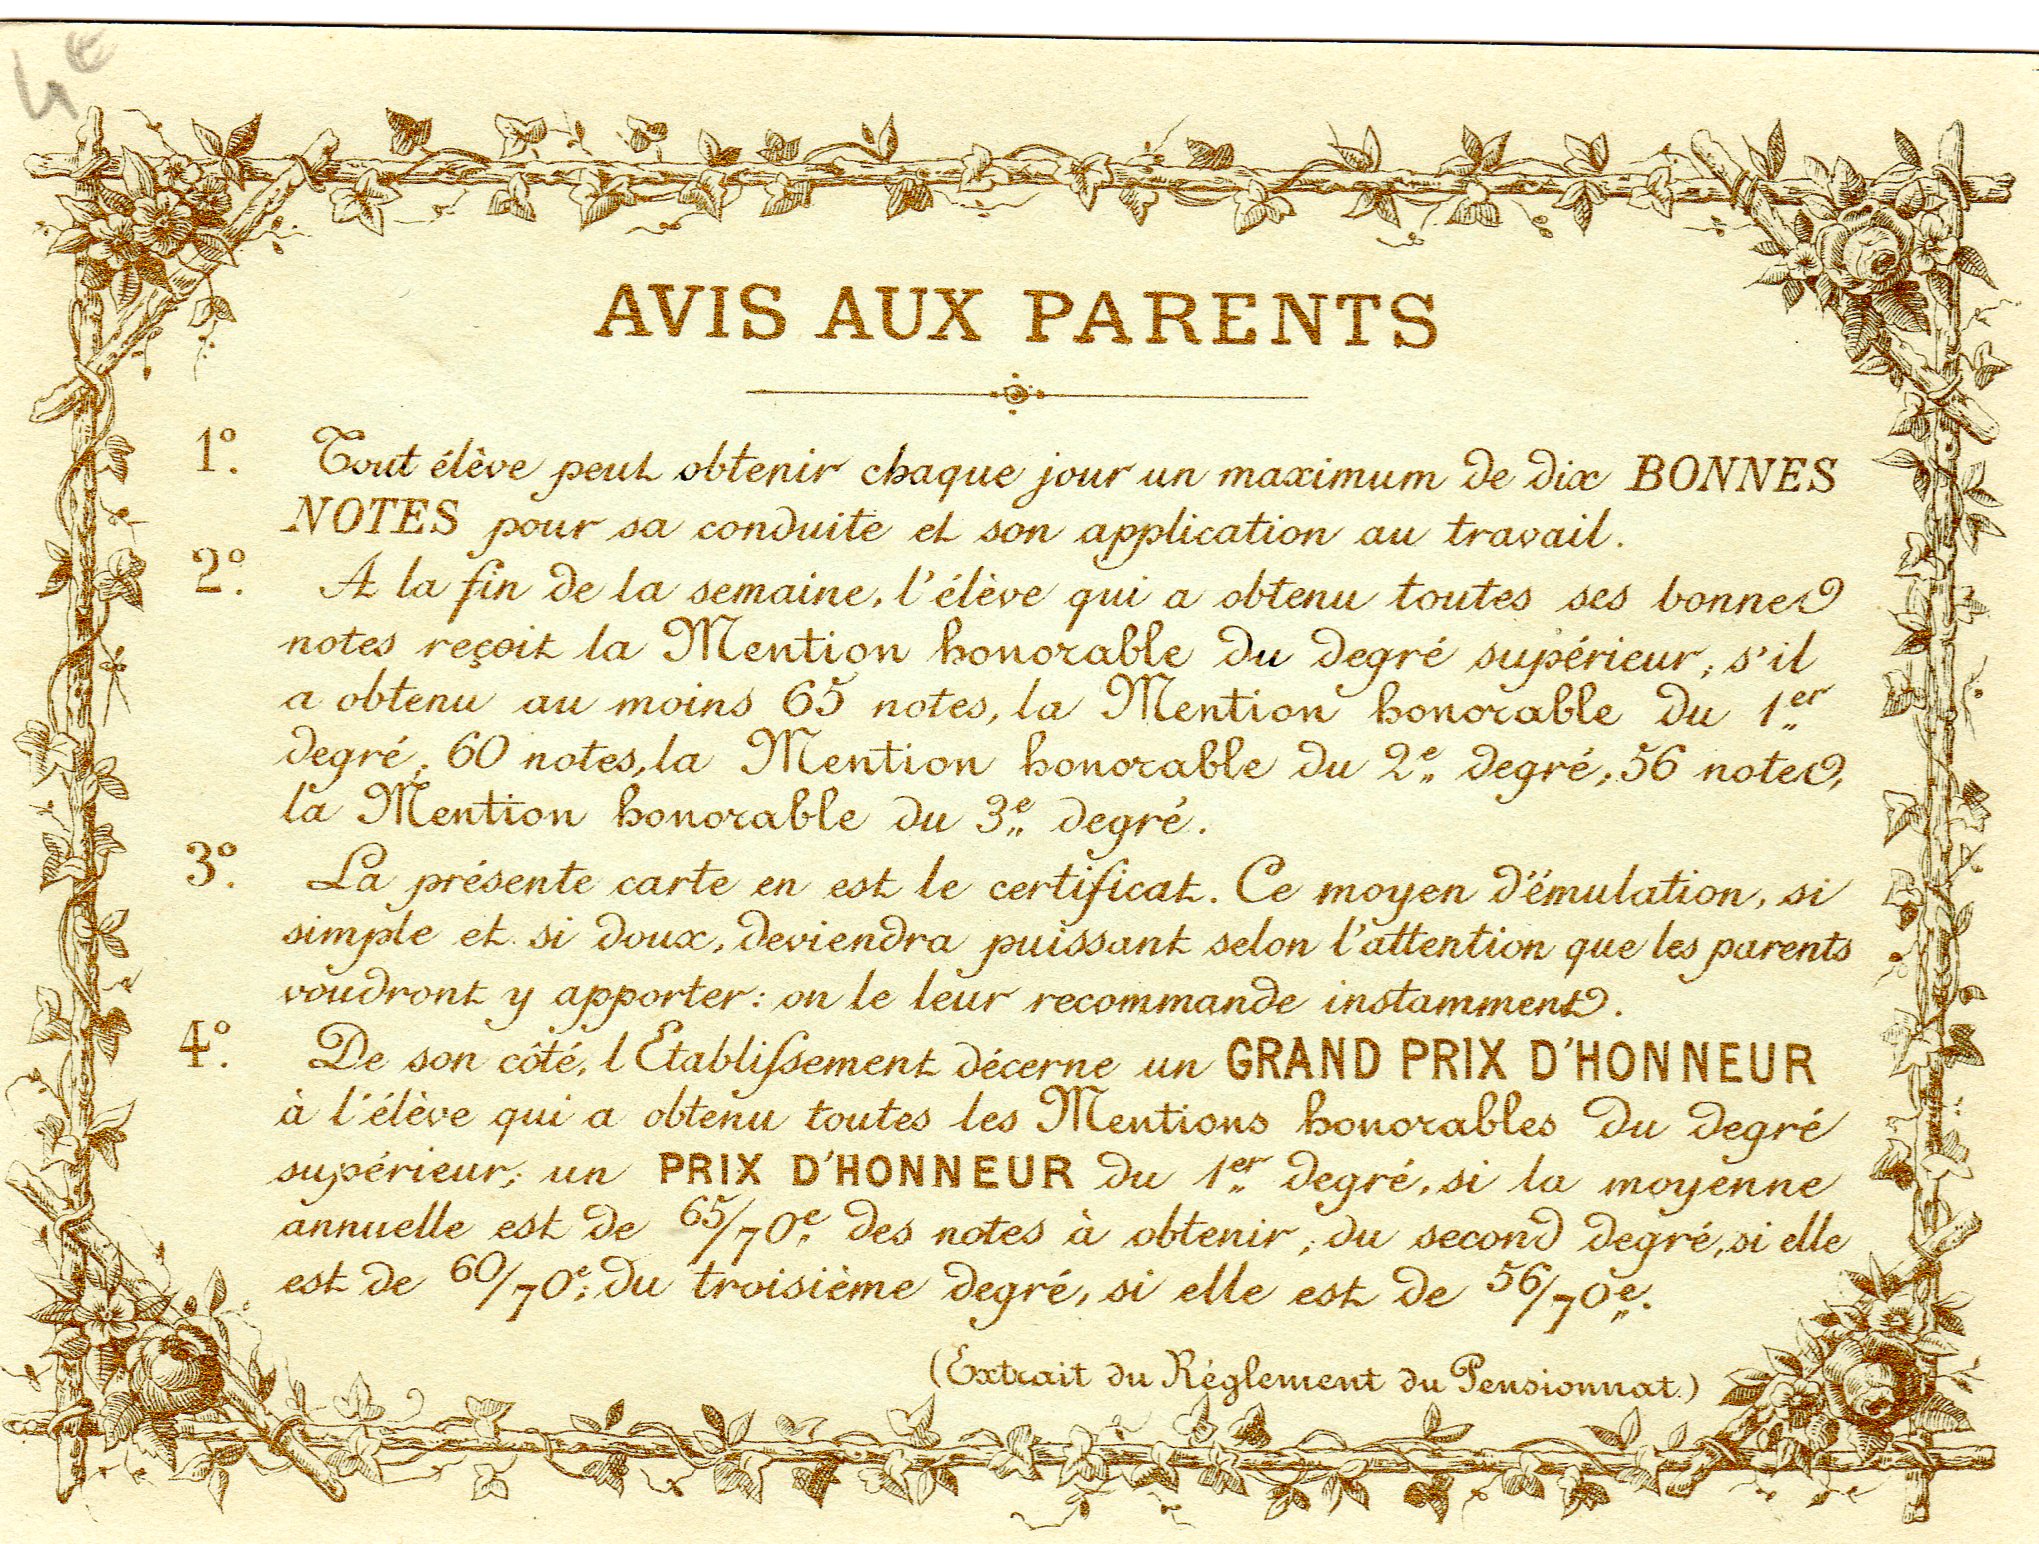 4e
AVIS AUX PARENTS
1º. Tout élève peut obtenir chaque jour un maximum de dix BONNES
NOTES pour sa conduite et son application au travail.
2º. A la fin de la semaine, l'élève qui a obtenu toutes ses bonnes
notes reçoit la Mention honorable du degré supérieur; s'il
a obtenu au moins 65 notes, la Mention honorable du 1er
degré; 60 notes, la Mention honorable du 2e degré; 56 notes,
la Mention honorable du 3e degré.
3º. La présente carte en est le certificat. Ce moyen d'émulation, si
simple et si doux, deviendra puissant selon l'attention que les parents
voudront y apporter: on le leur recommande instamment.
4º. De son côté, l'Etablissement décerne un GRAND PRIX D'HONNEUR
à l'élève qui a obtenu toutes les Mentions honorables du degré
supérieur; un PRIX D'HONNEUR du 1er degré, si la moyenne
annuelle est de 65/70e des notes à obtenir; du second degré, si elle
est de 60/70e; du troisième degré, si elle est de 56/70e.
(Extrait du Réglement du Pensionnat.)